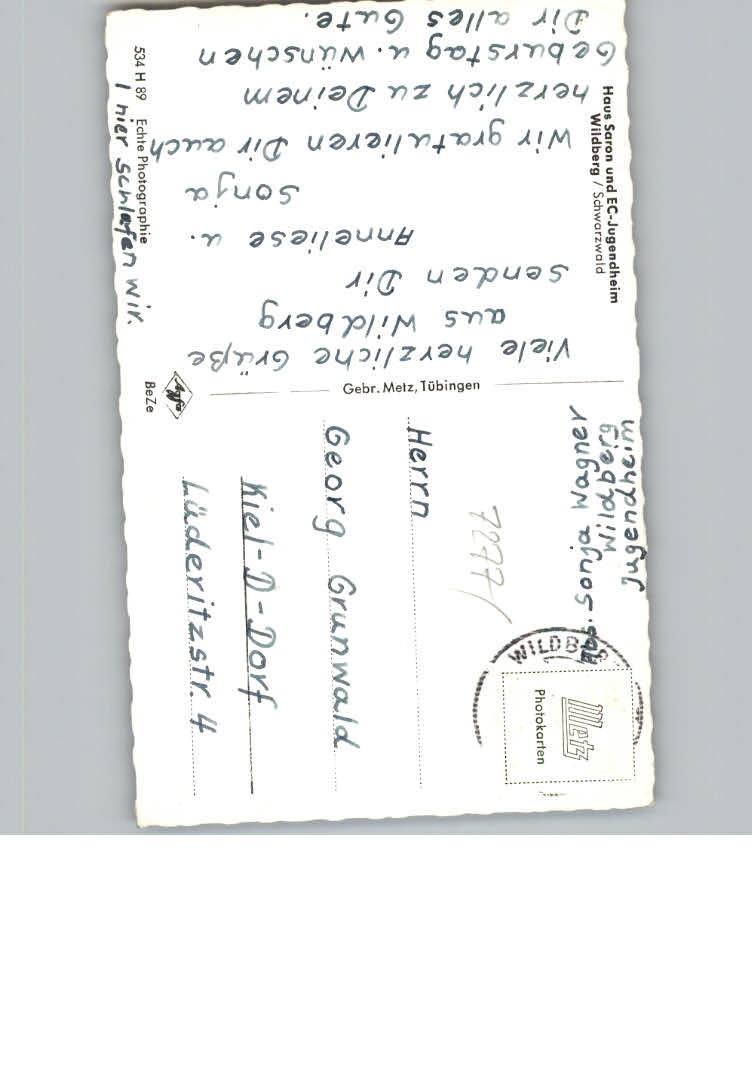 Haus Saron und EC-Jugendheim
Wildberg / Schwarzwald
Viele herzliche Grüße
aus Wildberg
senden Dir
Anneliese u.
Sonja
Wir gratulieren Dir auch
herzlich zu Deinem
Geburstag u. wünschen
Dir alles Gute.
534 H 89 Echte Photographie
1 hier schlafen wir.
BeZe
Agfa
Gebr. Metz, Tübingen
Abs. Sonja Wagner
Wildberg
Jugendheim
WILDB
Metz
Photokarten
7277/
Herrn
Georg Grunwald
Kiel-D-Dorf
Lüderitzstr. 4